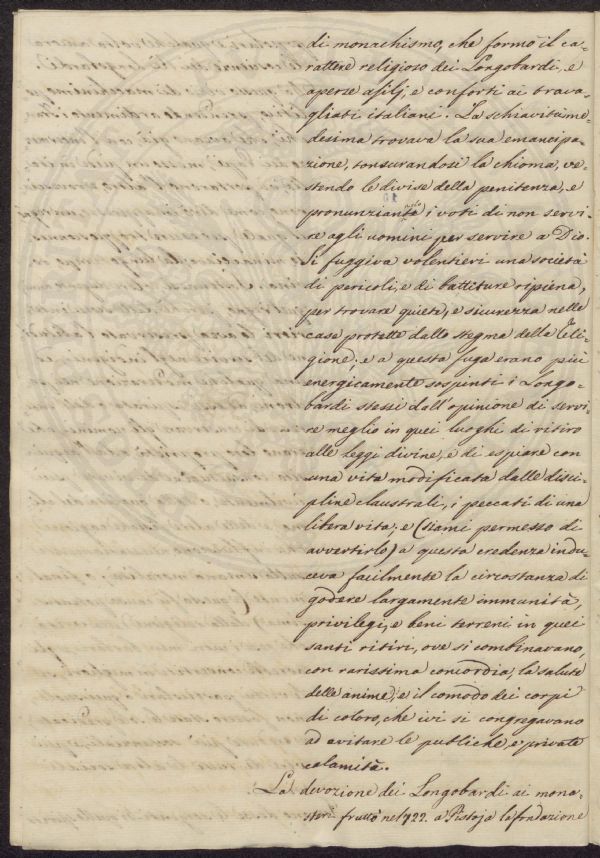 di monachismo, che formò il ca-
rattere religioso dei Longobardi, e
aperse asilj, e conforti ai trava-
gliati italiani. La schiavitù me-
desima trovava la sua emancipa-
zione, tonsurandosi la chioma, ve-
stendo le divise della penitenza, e
pronunziando i voti di non servi-
re agli uomini per servire a Dio.
Si fuggiva volentieri una società
di pericoli, e di battiture ripiena,
per trovare quiete, e sicurezza nelle
case protette dallo stegma della Reli-
gione; e a questa fuga erano più
energicamente sospinti i Longo-
bardi stessi dall'opinione di servi-
re meglio in quei luoghi di ritiro
alle leggi divine, e di espiare con
una vita modificata dalle disci-
pline claustrali, i peccati di una
libera vita; e (siami permesso di
avvertirlo) a questa credenza indu-
ceva facilmente la circostanza di
godere largamente immunità,
privilegi, e beni terreni in quei
santi ritiri, ove si combinavano,
con rarissima concordia, la salute
delle anime, e il comodo dei corpi
di coloro, che ivi si congregavano
ad evitare le publiche e private
calamità.
La devozione dei Longobardi ai mona-
steri fruttò nel 722. a Pistoja la fondazione